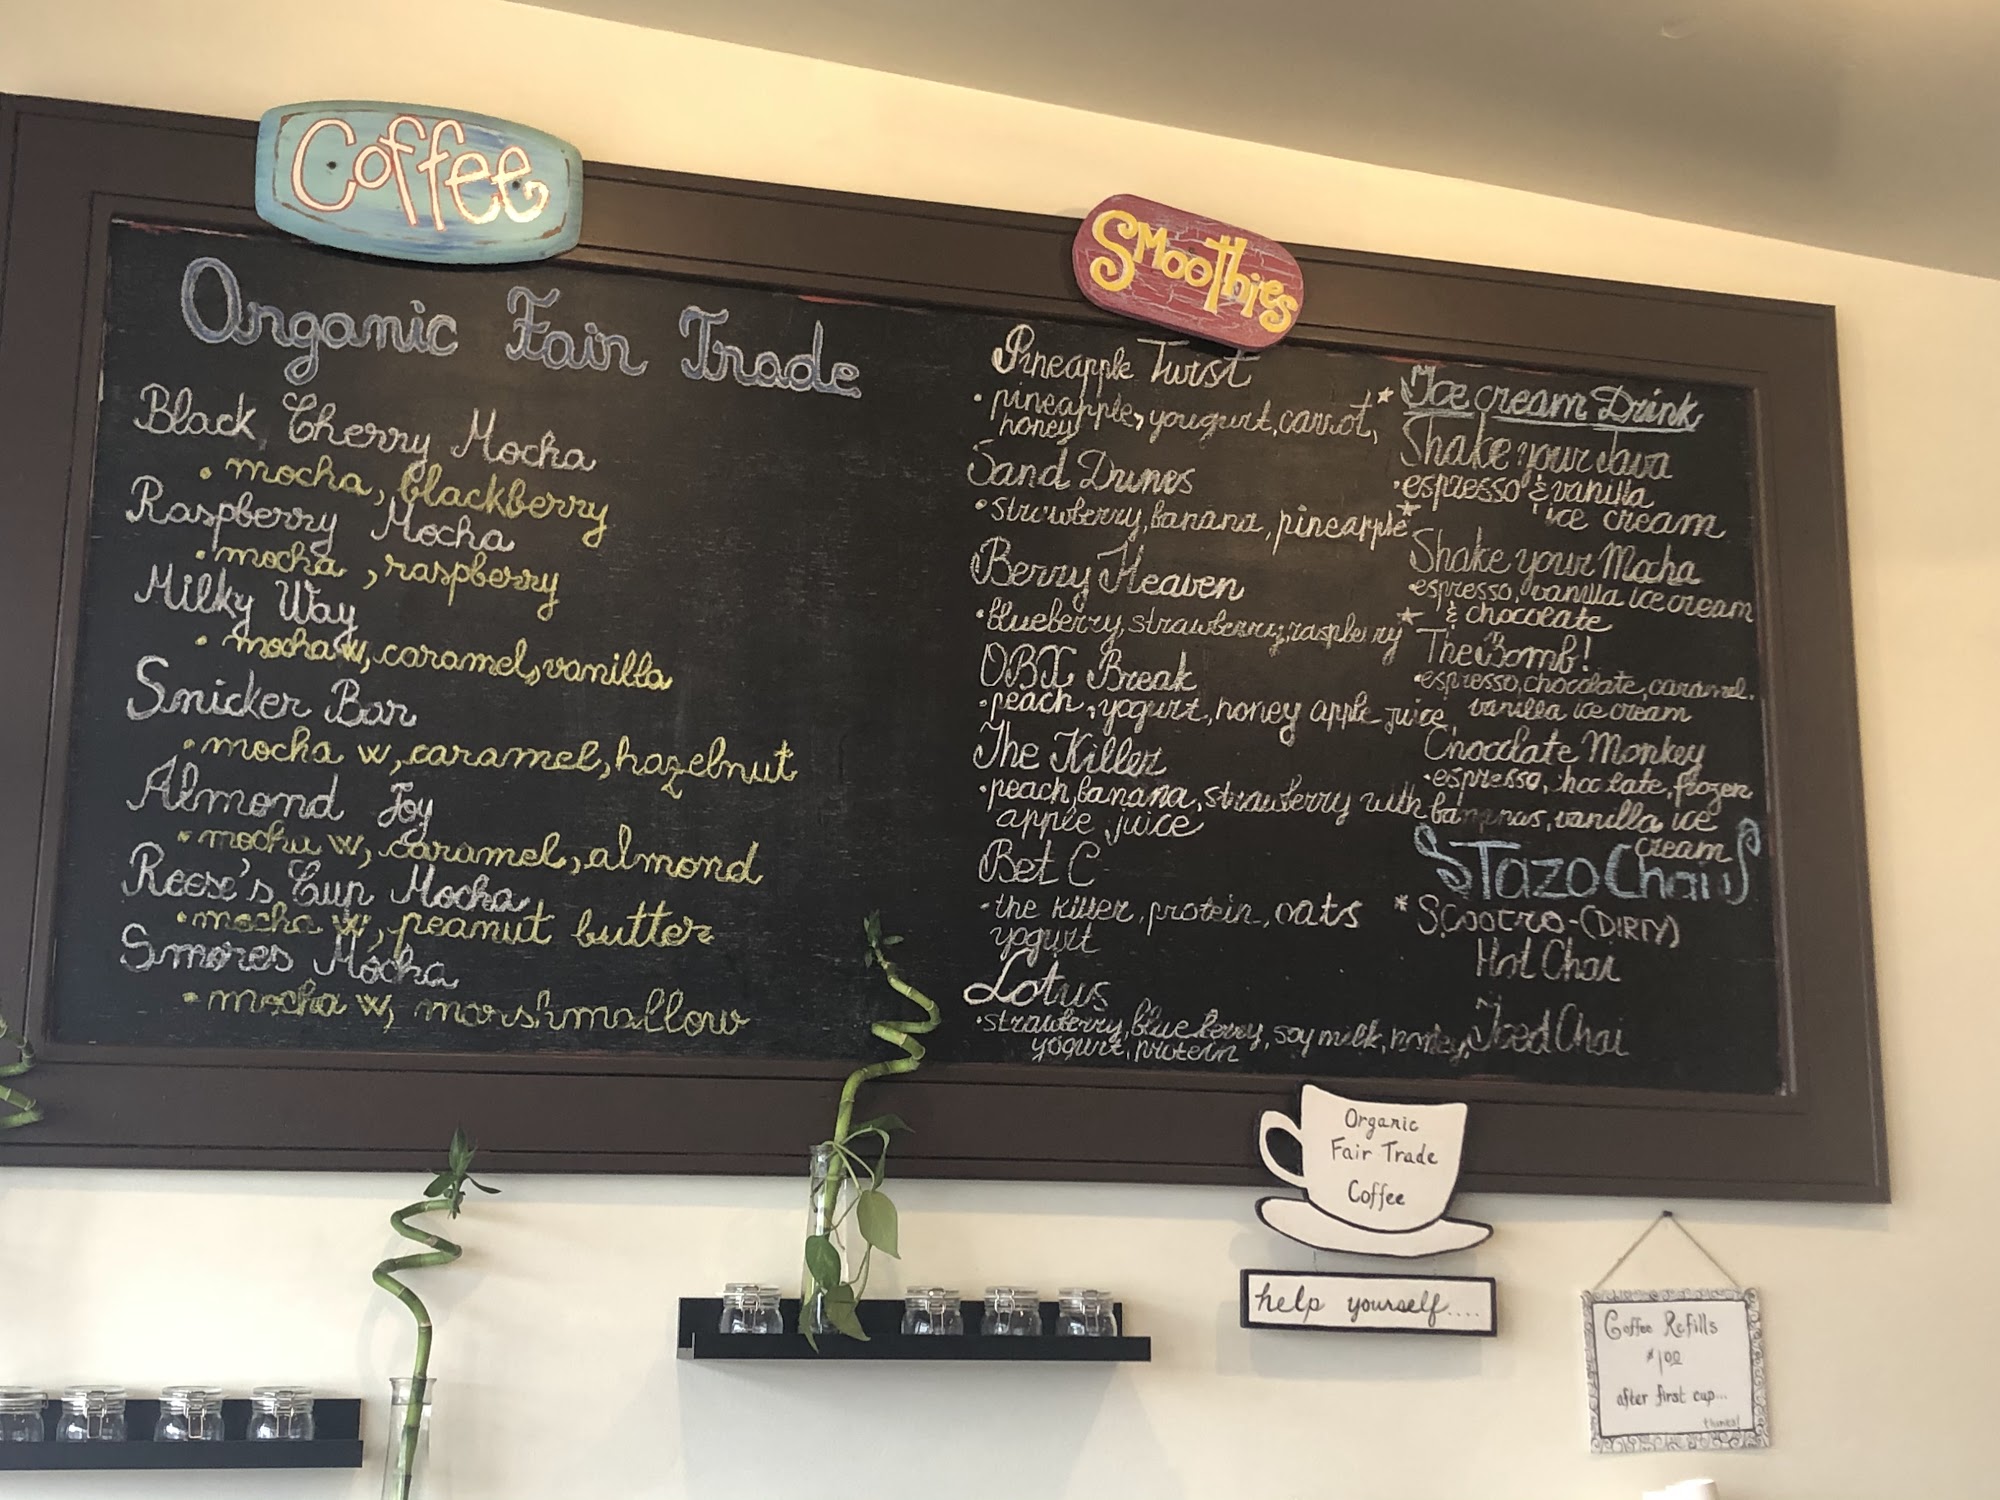 Coffee
Organic Fair Trade
Black Cherry Mocha
• mocha, blackberry
Raspberry Mocha
• mocha, raspberry
Milky Way
• mocha w, caramel, vanilla
Snicker Bar
• mocha w, caramel, hazelnut
Almond Joy
• mocha w, caramel, almond
Reese's Cup Mocha
• mocha w, peanut butter
Smores Mocha
• mocha w, marshmallow
Smoothies
Pineapple Twist
• pineapple, yougurt, carrot,
honey
Sand Dunes
• strawberry, banana, pineapple
Berry Heaven
• blueberry, strawberry, raspberry
OBX Break
• peach, yogurt, honey apple juice
The Killer
• peach, banana, strawberry with
apple juice
Bet C
• the killer, protein, oats
yogurt
Lotus
• strawberry, blueberry, soy milk, honey,
yogurt, protein
* Ice cream Drink
Shake your Java
• espresso & vanilla
ice cream
* Shake your Mocha
• espresso, vanilla ice cream
& chocolate
* The Bomb!
• espresso, chocolate, caramel.
vanilla ice cream
Chocolate Monkey
• espresso, chocolate, frozen
bananas, vanilla ice
cream
Tazo Chai
* Scootro-(DIRTY)
Hot Chai
Iced Chai
Organic
Fair Trade
Coffee
help yourself....
Coffee Refills
$1.00
after first cup...
thanks!